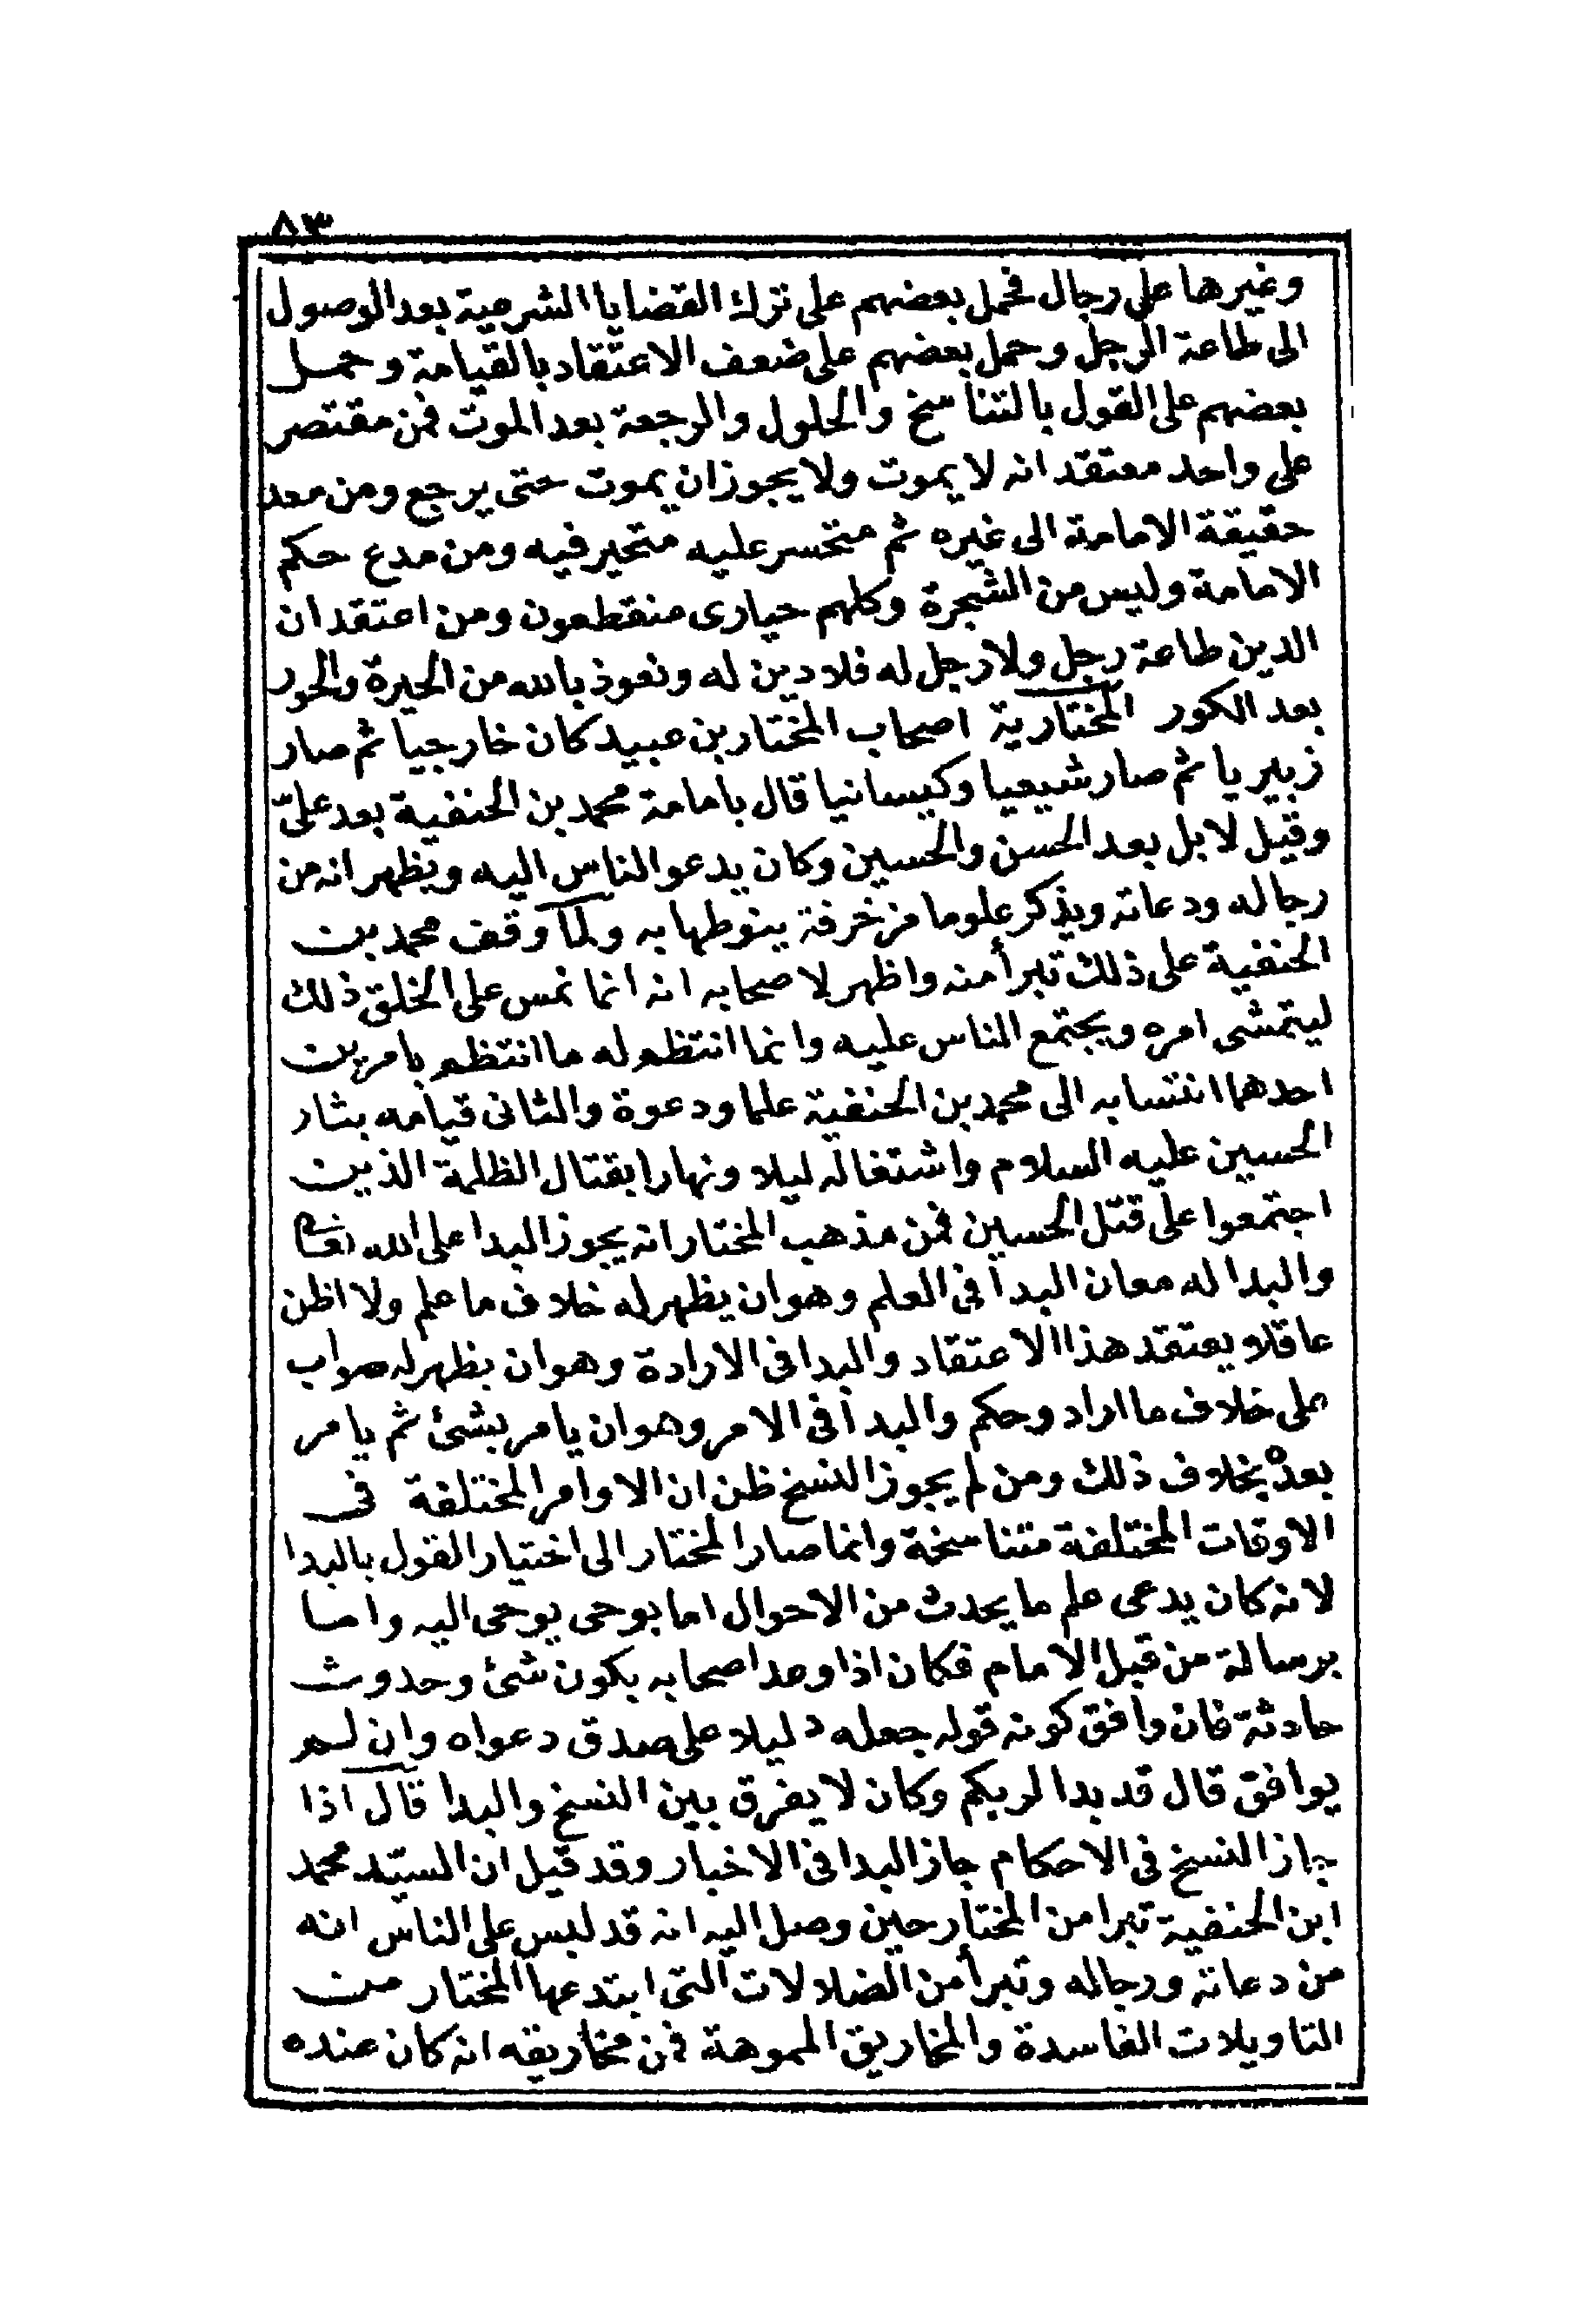 ٨٣
وغيرها على رجال فحمل بعضهم على ترك القضايا الشرعية بعد الوصول
الى طاعة الرجل وحمل بعضهم على ضعف الاعتقاد بالقيامة وحمل
بعضهم على القول بالتناسخ والحلول والرجعة بعد الموت فمن مقتصر
على واحد معتقد انه لا يموت ولا يجوز ان يموت حتى يرجع ومن معد
حقيقة الامامة الى غيره ثم متحسر عليه متحير فيه ومن مدع حكم
الامامة وليس من الشجرة وكلهم حيارى منقطعون ومن اعتقد ان
الدين طاعة رجل ولا رجل له فلا دين له ونعوذ بالله من الحيرة والحور
بعد الكور المختارية اصحاب المختار بن عبيد كان خارجيا ثم صار
زبيريا ثم صار شيعيا وكيسانيا قال بامامة محمد بن الحنفية بعد علىّ
وقيل لا بل بعد الحسن والحسين وكان يدعو الناس اليه ويظهر انه من
رجاله ودعاته ويذكر علوما مزخرفة ينوطها به ولما وقف محمد بن
الحنفية على ذلك تبرأ منه واظهر لاصحابه انه انما نمس على الخلق ذلك
ليتمشى امره ويجتمع الناس عليه وانما انتظم له ما انتظم بامرين
احدهما انتسابه الى محمد بن الحنفية علما ودعوة والثانى قيامه بثار
الحسين عليه السلام واشتغاله ليلا ونهارا بقتال الظلمة الذين
اجتمعوا على قتل الحسين فمن مذهب المختار انه يجوز البدا على الله تعالى
والبدا له معان البدا فى العلم وهو ان يظهر له خلاف ما علم ولا اظن
عاقلا يعتقد هذا الاعتقاد والبدا فى الارادة وهو ان يظهر له صواب
على خلاف ما اراد وحكم والبدا فى الامر وهو ان يامر بشئ ثم يامر
بعده بخلاف ذلك ومن لم يجوز النسخ ظن ان الاوامر المختلفة فى
الاوقات المختلفة متناسخة وانما صار المختار الى اختيار القول بالبدا
لانه كان يدعى علم ما يحدث من الاحوال اما بوحى يوحى اليه واما
برسالة من قبل الامام فكان اذا وعد اصحابه بكون شئ وحدوث
حادثة فان وافق كونه قوله جعله دليلا على صدق دعواه وان لم
يوافق قال قد بدا لربكم وكان لا يفرق بين النسخ والبدا قال اذا
جاز النسخ فى الاحكام جاز البدا فى الاخبار وقد قيل ان السيّد محمد
ابن الحنفية تبرا من المختار حين وصل اليه انه قد لبس على الناس انه
من دعاته ورجاله وتبرأ من الضلالات التى ابتدعها المختار من
التاويلات الفاسدة والمخاريق المموهة فمن مخاريقه انه كان عنده